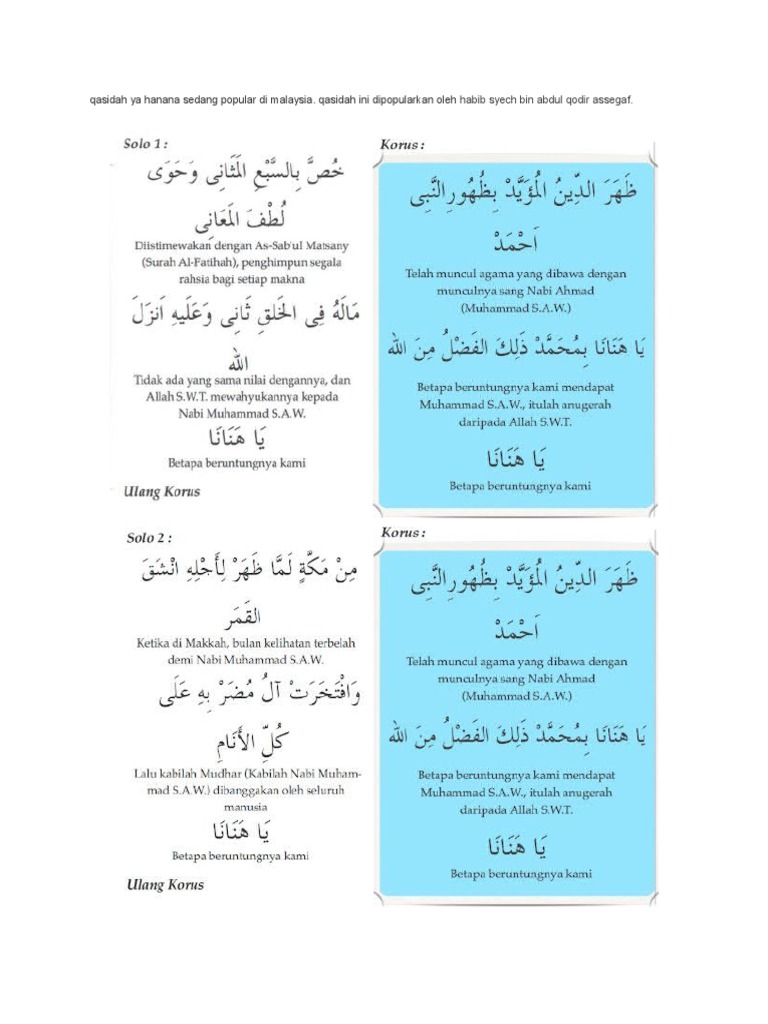 qasidah ya hanana sedang popular di malaysia. qasidah ini dipopularkan oleh habib syech bin abdul qodir assegaf.
Solo 1 :
خُصَّ بِالسَّبْعِ الْمَثَانِى وَحَوَى
لُطْفَ الْمَعَانِى
Diistimewakan dengan As-Sab'ul Matsany
(Surah Al-Fatihah), penghimpun segala
rahsia bagi setiap makna
مَالَهُ فِى الْخَلقِ ثَانِى وَعَلَيهِ اَنزَلَ
الله
Tidak ada yang sama nilai dengannya, dan
Allah S.W.T. mewahyukannya kepada
Nabi Muhammad S.A.W.
يَا هَنَانَا
Betapa beruntungnya kami
Ulang Korus
Korus :
ظَهَرَ الدِّينُ الْمُؤَيَّدْ بِظُهُورِ النَّبِى
اَحْمَدْ
Telah muncul agama yang dibawa dengan
munculnya sang Nabi Ahmad
(Muhammad S.A.W.)
يَا هَنَانَا بِمُحَمَّدْ ذَلِكَ الفَضْلُ مِنَ الله
Betapa beruntungnya kami mendapat
Muhammad S.A.W., itulah anugerah
daripada Allah S.W.T.
يَا هَنَانَا
Betapa beruntungnya kami
Solo 2 :
مِنْ مَكَّةٍ لَمَّا ظَهَرْ لِأَجْلِهِ انْشَقَ
القَمَر
Ketika di Makkah, bulan kelihatan terbelah
demi Nabi Muhammad S.A.W.
وَافْتَخَرَتْ آلُ مُضَرْ بِهِ عَلَى
كُلِّ الأَنَامِ
Lalu kabilah Mudhar (Kabilah Nabi Muham-
mad S.A.W.) dibanggakan oleh seluruh
manusia
يَا هَنَانَا
Betapa beruntungnya kami
Ulang Korus
Korus :
ظَهَرَ الدِّينُ الْمُؤَيَّدْ بِظُهُورِ النَّبِى
اَحْمَدْ
Telah muncul agama yang dibawa dengan
munculnya sang Nabi Ahmad
(Muhammad S.A.W.)
يَا هَنَانَا بِمُحَمَّدْ ذَلِكَ الفَضْلُ مِنَ الله
Betapa beruntungnya kami mendapat
Muhammad S.A.W., itulah anugerah
daripada Allah S.W.T.
يَا هَنَانَا
Betapa beruntungnya kami